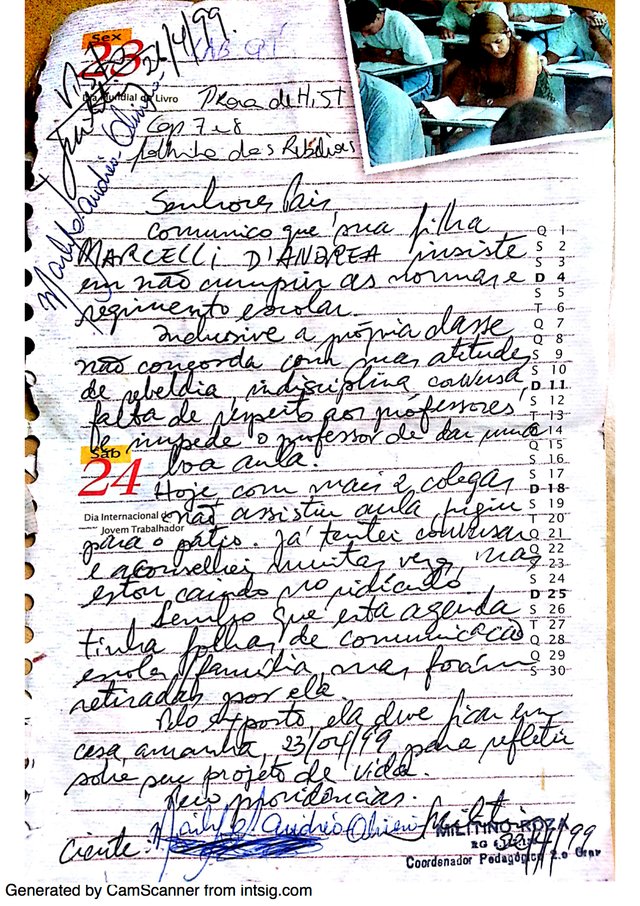 Sex
23
Dia Mundial do Livro
26/4/99.
Prova de Hist
Cap 7 e 8
Senhores Pais,
comunico que sua filha
MARCELLI D'ANDREA insiste
em não cumprir as normas e
regimento escolar.
Inclusive a própria classe
não concorda com suas atitudes
de rebeldia, indisciplina conversa,
falta de respeito aos professores,
e impede o professor de dar uma
boa aula.
Sáb
24
Dia Internacional do
Jovem Trabalhador
Hoje, com mais 2 colegas
não assistiu aula fugiu
para o pátio. Já tentei conversar
e aconselhei muitas vezes, mas
estou caindo no ridículo.
Lembro que esta agenda
tinha folhas de comunicação
escola/família, mas foram
retiradas por ela.
Pelo exposto, ela deve ficar em
casa, amanhã, 23/04/99 para refletir
sobre seu projeto de vida.
Peço providências.
Ciente:
MILITINO ROZA
RG
Coordenador Pedagógico 2.o Grau
22/4/99
Q 1
S 2
S 3
D 4
S 5
T 6
Q 7
Q 8
S 9
S 10
D 11
S 12
T 13
Q 14
Q 15
S 16
S 17
D 18
S 19
T 20
Q 21
Q 22
S 23
S 24
D 25
S 26
T 27
Q 28
Q 29
S 30
Generated by CamScanner from intsig.com